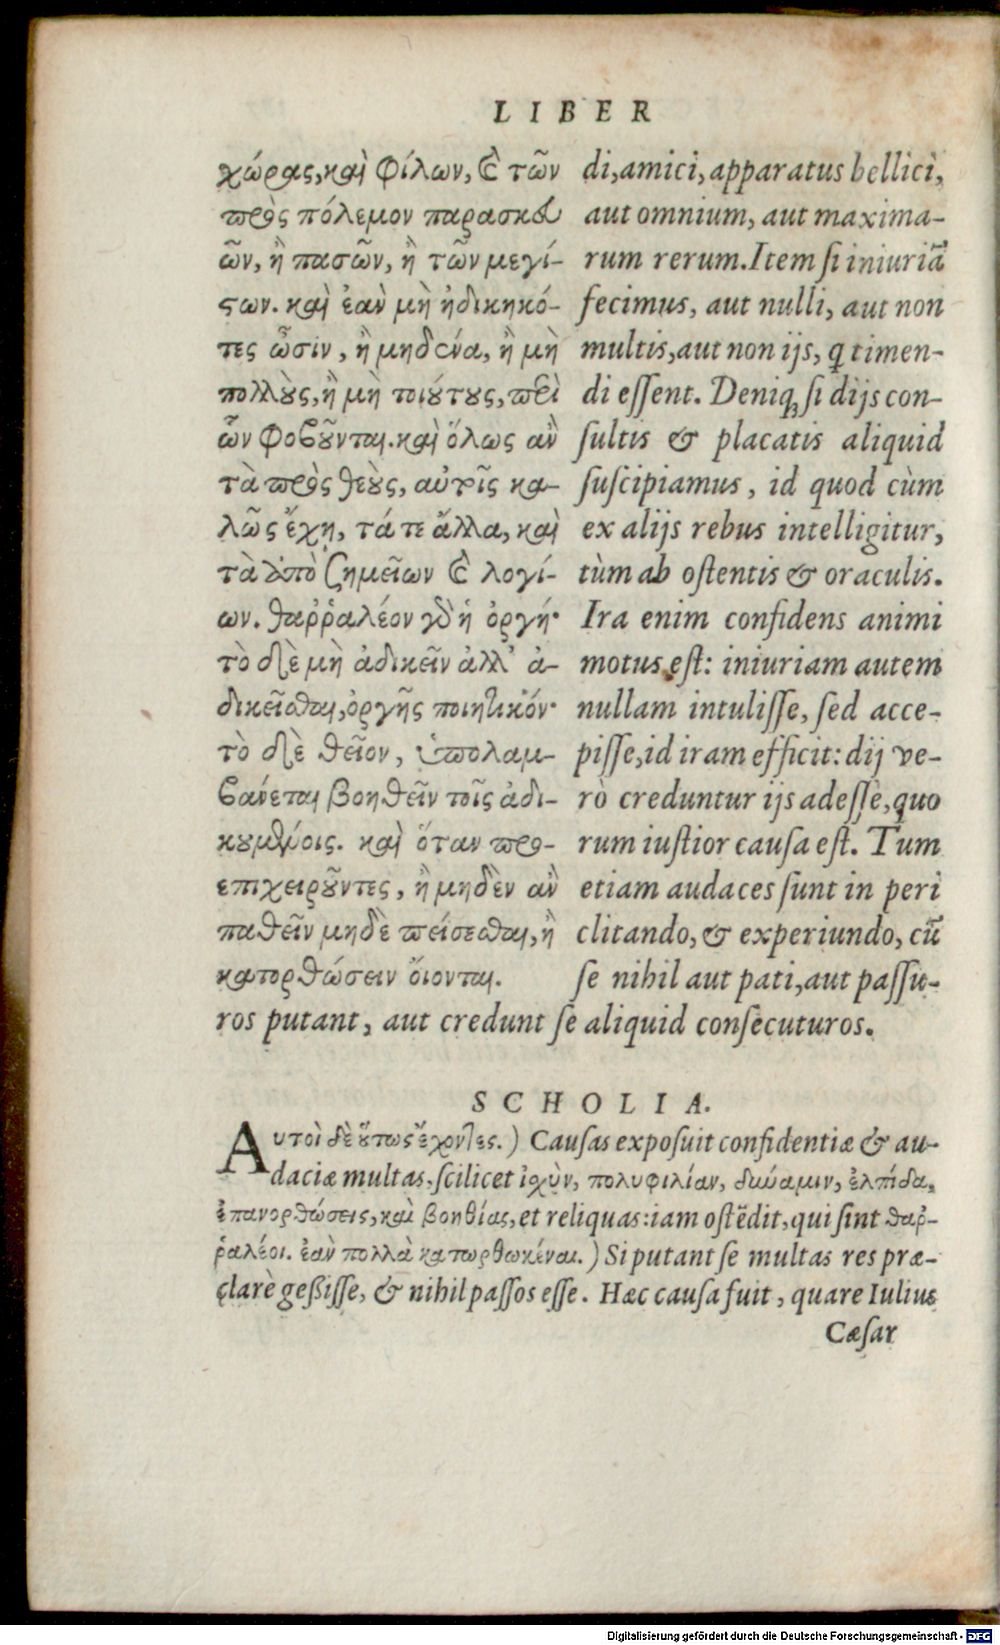 LIBER
χώρας, καὶ φίλων, & τῶν
πρὸς πόλεμον παρασκευ
ῶν, ἢ πασῶν, ἢ τῶν μεγί-
στων. καὶ ἐὰν μὴ ἠδικηκό-
τες ὦσιν, ἢ μηδένα, ἢ μὴ
πολλοὺς, ἢ μὴ τοιούτους, περὶ
ὧν φοβοῦνται. καὶ ὅλως ἂν
τὰ πρὸς θεοὺς, αὐτοῖς κα-
λῶς ἔχῃ, τά τε ἄλλα, καὶ
τὰ ἀπὸ ζημείων & λογί-
ων. θαῤῥαλέον γὰρ ἡ ὀργή·
τὸ δὲ μὴ ἀδικεῖν ἀλλ' ἀ-
δικεῖσθαι, ὀργῆς ποιητικόν·
τὸ δὲ θεῖον, ὑπολαμ-
βάνεται βοηθεῖν τοῖς ἀδι-
κουμένοις. καὶ ὅταν προ-
επιχειροῦντες, ἢ μηδὲν ἂν
παθεῖν μηδὲ πείσεσθαι, ἢ
κατορθώσειν ὄιονται.
di, amici, apparatus bellici,
aut omnium, aut maxima-
rum rerum. Item si iniuriã
fecimus, aut nulli, aut non
multis, aut non ijs, q timen-
di essent. Deniq; si dijs con-
sultis & placatis aliquid
suscipiamus, id quod cùm
ex alijs rebus intelligitur,
tùm ab ostentis & oraculis.
Ira enim confidens animi
motus est: iniuriam autem
nullam intulisse, sed acce-
pisse, id iram efficit: dij ve-
rò creduntur ijs adesse, quo
rum iustior causa est. Tum
etiam audaces sunt in peri
clitando, & experiundo, cũ
se nihil aut pati, aut passu-
ros putant, aut credunt se aliquid consecuturos.
SCHOLIA.
Αυτοὶ δὲ οὕτως ἔχοντες.) Causas exposuit confidentiæ & au-
daciæ multas, scilicet ἰσχὺν, πολυφιλίαν, δύναμιν, ἐλπίδα,
ἐπανορθώσεις, καὶ βοηθίας, et reliquas: iam ostẽdit, qui sint θαῤ-
ῥαλέοι. ἐὰν πολλὰ κατωρθωκέναι.) Si putant se multas res præ-
clarè geßisse, & nihil passos esse. Hæc causa fuit, quare Iulius
Cæsar
Digitalisierung gefördert durch die Deutsche Forschungsgemeinschaft - DFG